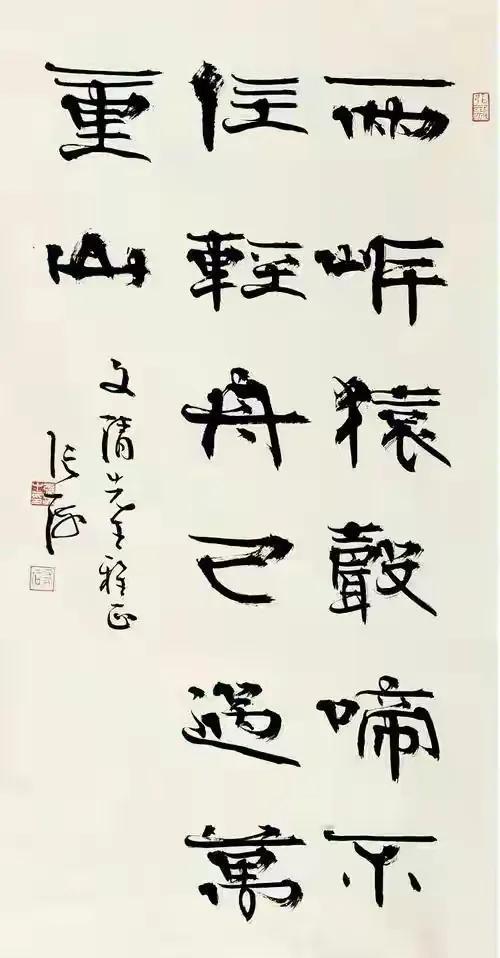 兩岸猿聲啼不
住輕舟已過萬
重山
文清先生雅正
张海